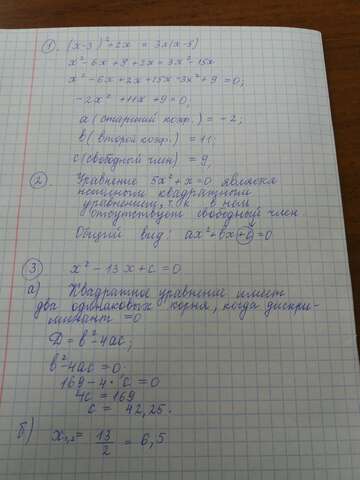 1. (x-3)²+2x = 3x(x-5)
x²-6x+9+2x=3x²-15x
x²-6x+2x+15x-3x²+9=0;
-2x²+11x+9=0;
a(старший коэф.) = -2;
b(второй коэф.) = 11;
c(свободный член) = 9.
2. Уравнение 5x²+x=0 является
неполным квадратным
уравнением, т.к. в нем
отсутствует свободный член.
Общий вид: ax²+bx+c=0
3 x²-13x+c=0
а) Квадратное уравнение имеет
два одинаковых корня, когда дискри-
минант =0
D=b²-4ac;
b²-4ac=0
169-4·c=0
4c=169
c = 42,25.
б) x₁,₂= 13/2 = 6,5